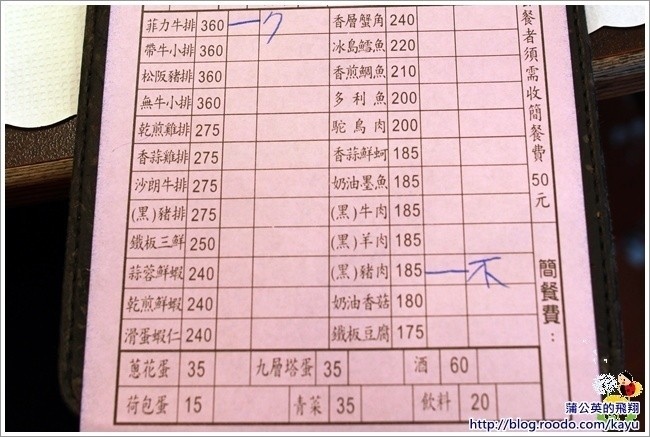 菲力牛排 360 一ク 香層蟹角 240
帶牛小排 360 冰島鱈魚 220
松阪豬排 360 香煎鯛魚 210
無牛小排 360 多利魚 200
乾煎雞排 275 鴕鳥肉 200
香蒜雞排 275 香蒜鮮蚵 185
沙朗牛排 275 奶油墨魚 185
(黑)豬排 275 (黑)牛肉 185
鐵板三鮮 250 (黑)羊肉 185
蒜蓉鮮蝦 240 (黑)豬肉 185 一不
乾煎鮮蝦 240 奶油香菇 180
滑蛋蝦仁 240 鐵板豆腐 175
蔥花蛋 35 九層塔蛋 35 酒 60
荷包蛋 15 青菜 35 飲料 20
餐者須需收簡餐費50元
簡餐費：
蒲公英的飛翔
http://blog.roodo.com/kayu